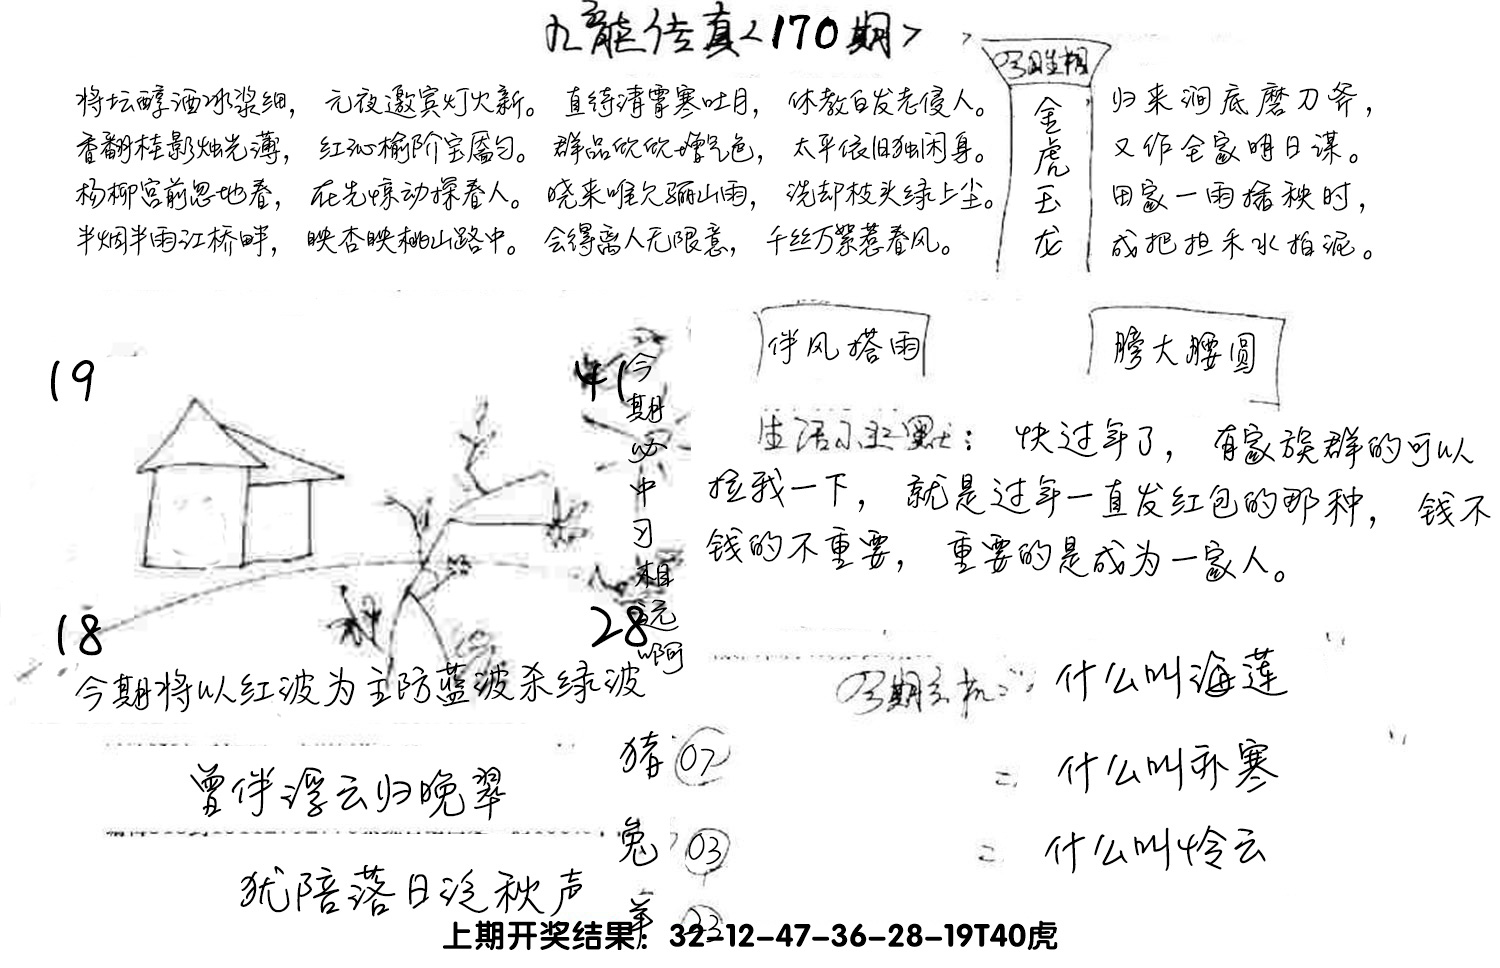 九龙传真<170期>
将坛醇酒冰浆细，元夜邀宾灯火新。直待清霄寒吐月，休教白发老侵人。
香翻桂影烛光薄，红沁榆阶宝靥匀。群品欣欣增气色，太平依旧独闲身。
杨柳宫前忽地春，在先惊动探春人。晓来唯欠骊山雨，洗却枝头绿上尘。
半烟半雨江桥畔，映杏映桃山路中。会得离人无限意，千丝万絮惹春风。
金虎玉龙
归来涧底磨刀斧，
又作全家明日谋。
田家一雨插秧时，
成把担禾水拍泥。
伴风搭雨
膀大腰圆
19
41
18
28
今期必中习相远啊
今期将以红波为主防蓝波杀绿波
快过年了，有家族群的可以
拉我一下，就是过年一直发红包的那种，钱不
钱的不重要，重要的是成为一家人。
什么叫海莲
什么叫孙寒
什么叫怜云
曾伴浮云归晚翠
犹陪落日泛秋声
猪 07
兔 03
羊 23
上期开奖结果：32-12-47-36-28-19T40虎